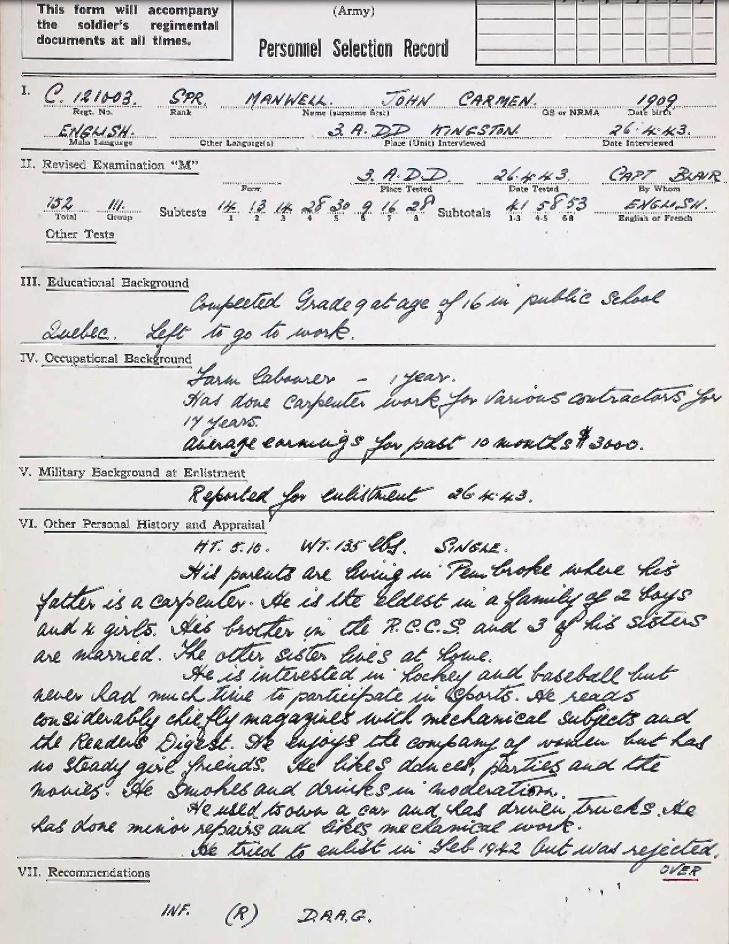 This form will accompany
the soldier's regimental
documents at all times.
(Army)
Personnel Selection Record
I. C. 121003. SPR. MANWELL. JOHN CARMEN. 1909
Regt. No. Rank Name (surname first) GS or NRMA Date birth
ENGLISH. 3. A. D D KINGSTON. 26.4.43.
Main Language Other Language(s) Place (Unit) Interviewed Date Interviewed
II. Revised Examination "M" 3. A. D. D. 26.4.43. CAPT BLAIR
Form Place Tested Date Tested By Whom
152 III. Subtests 14 13 14 28 30 9 16 28 Subtotals 41 58 53 ENGLISH.
Total Group 1 2 3 4 5 6 7 8 1-3 4-5 6-8 English or French
Other Tests
III. Educational Background
Completed Grade 9 at age of 16 in public school
Quebec. Left to go to work.
IV. Occupational Background
Farm labourer - 1 year.
Has done carpenter work for various contractors for
17 years.
average earnings for past 10 months $3000.
V. Military Background at Enlistment
Reported for enlistment 26.4.43.
VI. Other Personal History and Appraisal
HT. 5.10. WT. 135 lbs. SINGLE.
His parents are living in Pembroke where his
father is a carpenter. He is the eldest in a family of 2 boys
and 4 girls. His brother in the R.C.C.S. and 3 of his sisters
are married. The other sister lives at home.
He is interested in hockey and baseball but
never had much time to participate in sports. He reads
considerably chiefly magazines with mechanical subjects and
the Readers Digest. He enjoys the company of women but has
no steady girl friends. He likes dances, parties and the
movies. He smokes and drinks in moderation.
He used to own a car and has driven trucks. He
has done minor repairs and likes mechanical work.
He tried to enlist in Feb 1942 but was rejected.
OVER
VII. Recommendations
INF. (R) D.A.A.G.